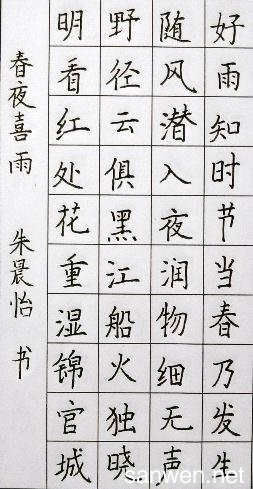 好雨知时节当春乃发生
随风潜入夜润物细无声
野径云俱黑江船火独晓
明看红处花重湿锦官城
春夜喜雨 朱晨怡 书
sanwen.net